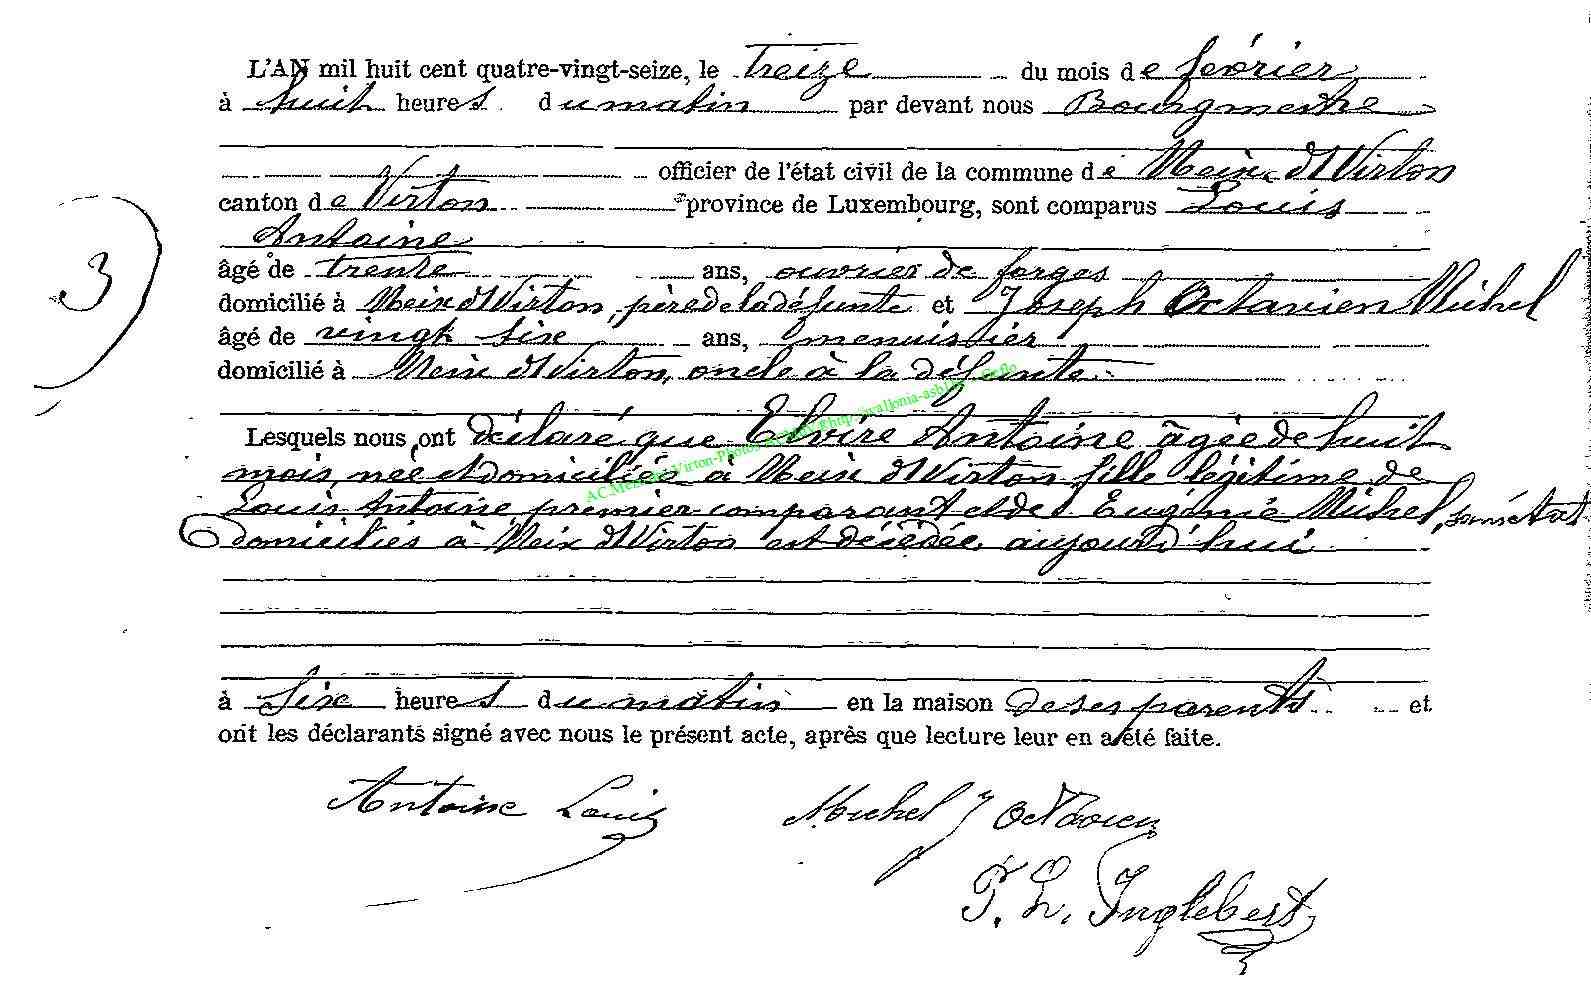 L'AN mil huit cent quatre-vingt-seize, le treize du mois de février
à huit heures du matin par devant nous Bourgmestre
officier de l'état civil de la commune de Meix dt Virton
canton de Virton province de Luxembourg, sont comparus Louis
Antoine
âgé de trente ans, ouvrier de forges
domicilié à Meix dt Virton, père de la défunte et Joseph Octavien Michel
âgé de vingt six ans, menuisier
domicilié à Meix dt Virton, oncle à la défunte
Lesquels nous ont déclaré que Elvire Antoine âgée de huit
mois, née et domiciliée à Meix dt Virton fille légitime de
Louis Antoine premier comparant et de Eugénie Michel, sans état
domiciliés à Meix dt Virton est décédée aujourd'hui
à six heures du matin en la maison de ses parents et
ont les déclarants signé avec nous le présent acte, après que lecture leur en a été faite.
3
Antoine Louis Michel J Octavien
J. L. Inglebert